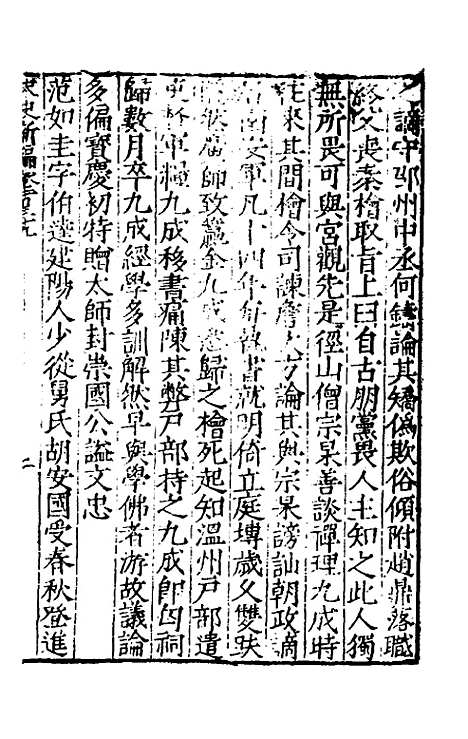 謫守邵州中丞何鑄論其矯偽欺俗傾附趙鼎落職
終父喪秦檜取旨上曰自古朋黨畏人主知之此人獨
無所畏可與宮觀先是徑山僧宗杲善談禪理九成時
往來其間檜令司諫詹大方論其與宗杲謗訕朝政謫
居南安軍凡十四年每執書就明倚立庭塼歲久雙趺
隱然廣帥致籯金九成悉歸之檜死起知溫州戶部遣
吏督軍糧九成移書痛陳其弊戶部持之九成即囚祠
歸數月卒九成經學多訓解然早與學佛者游故議論
多偏寶慶初特贈太師封崇國公謚文忠
范如圭字伯達建陽人少從舅氏胡安國受春秋登進
宋史新編卷